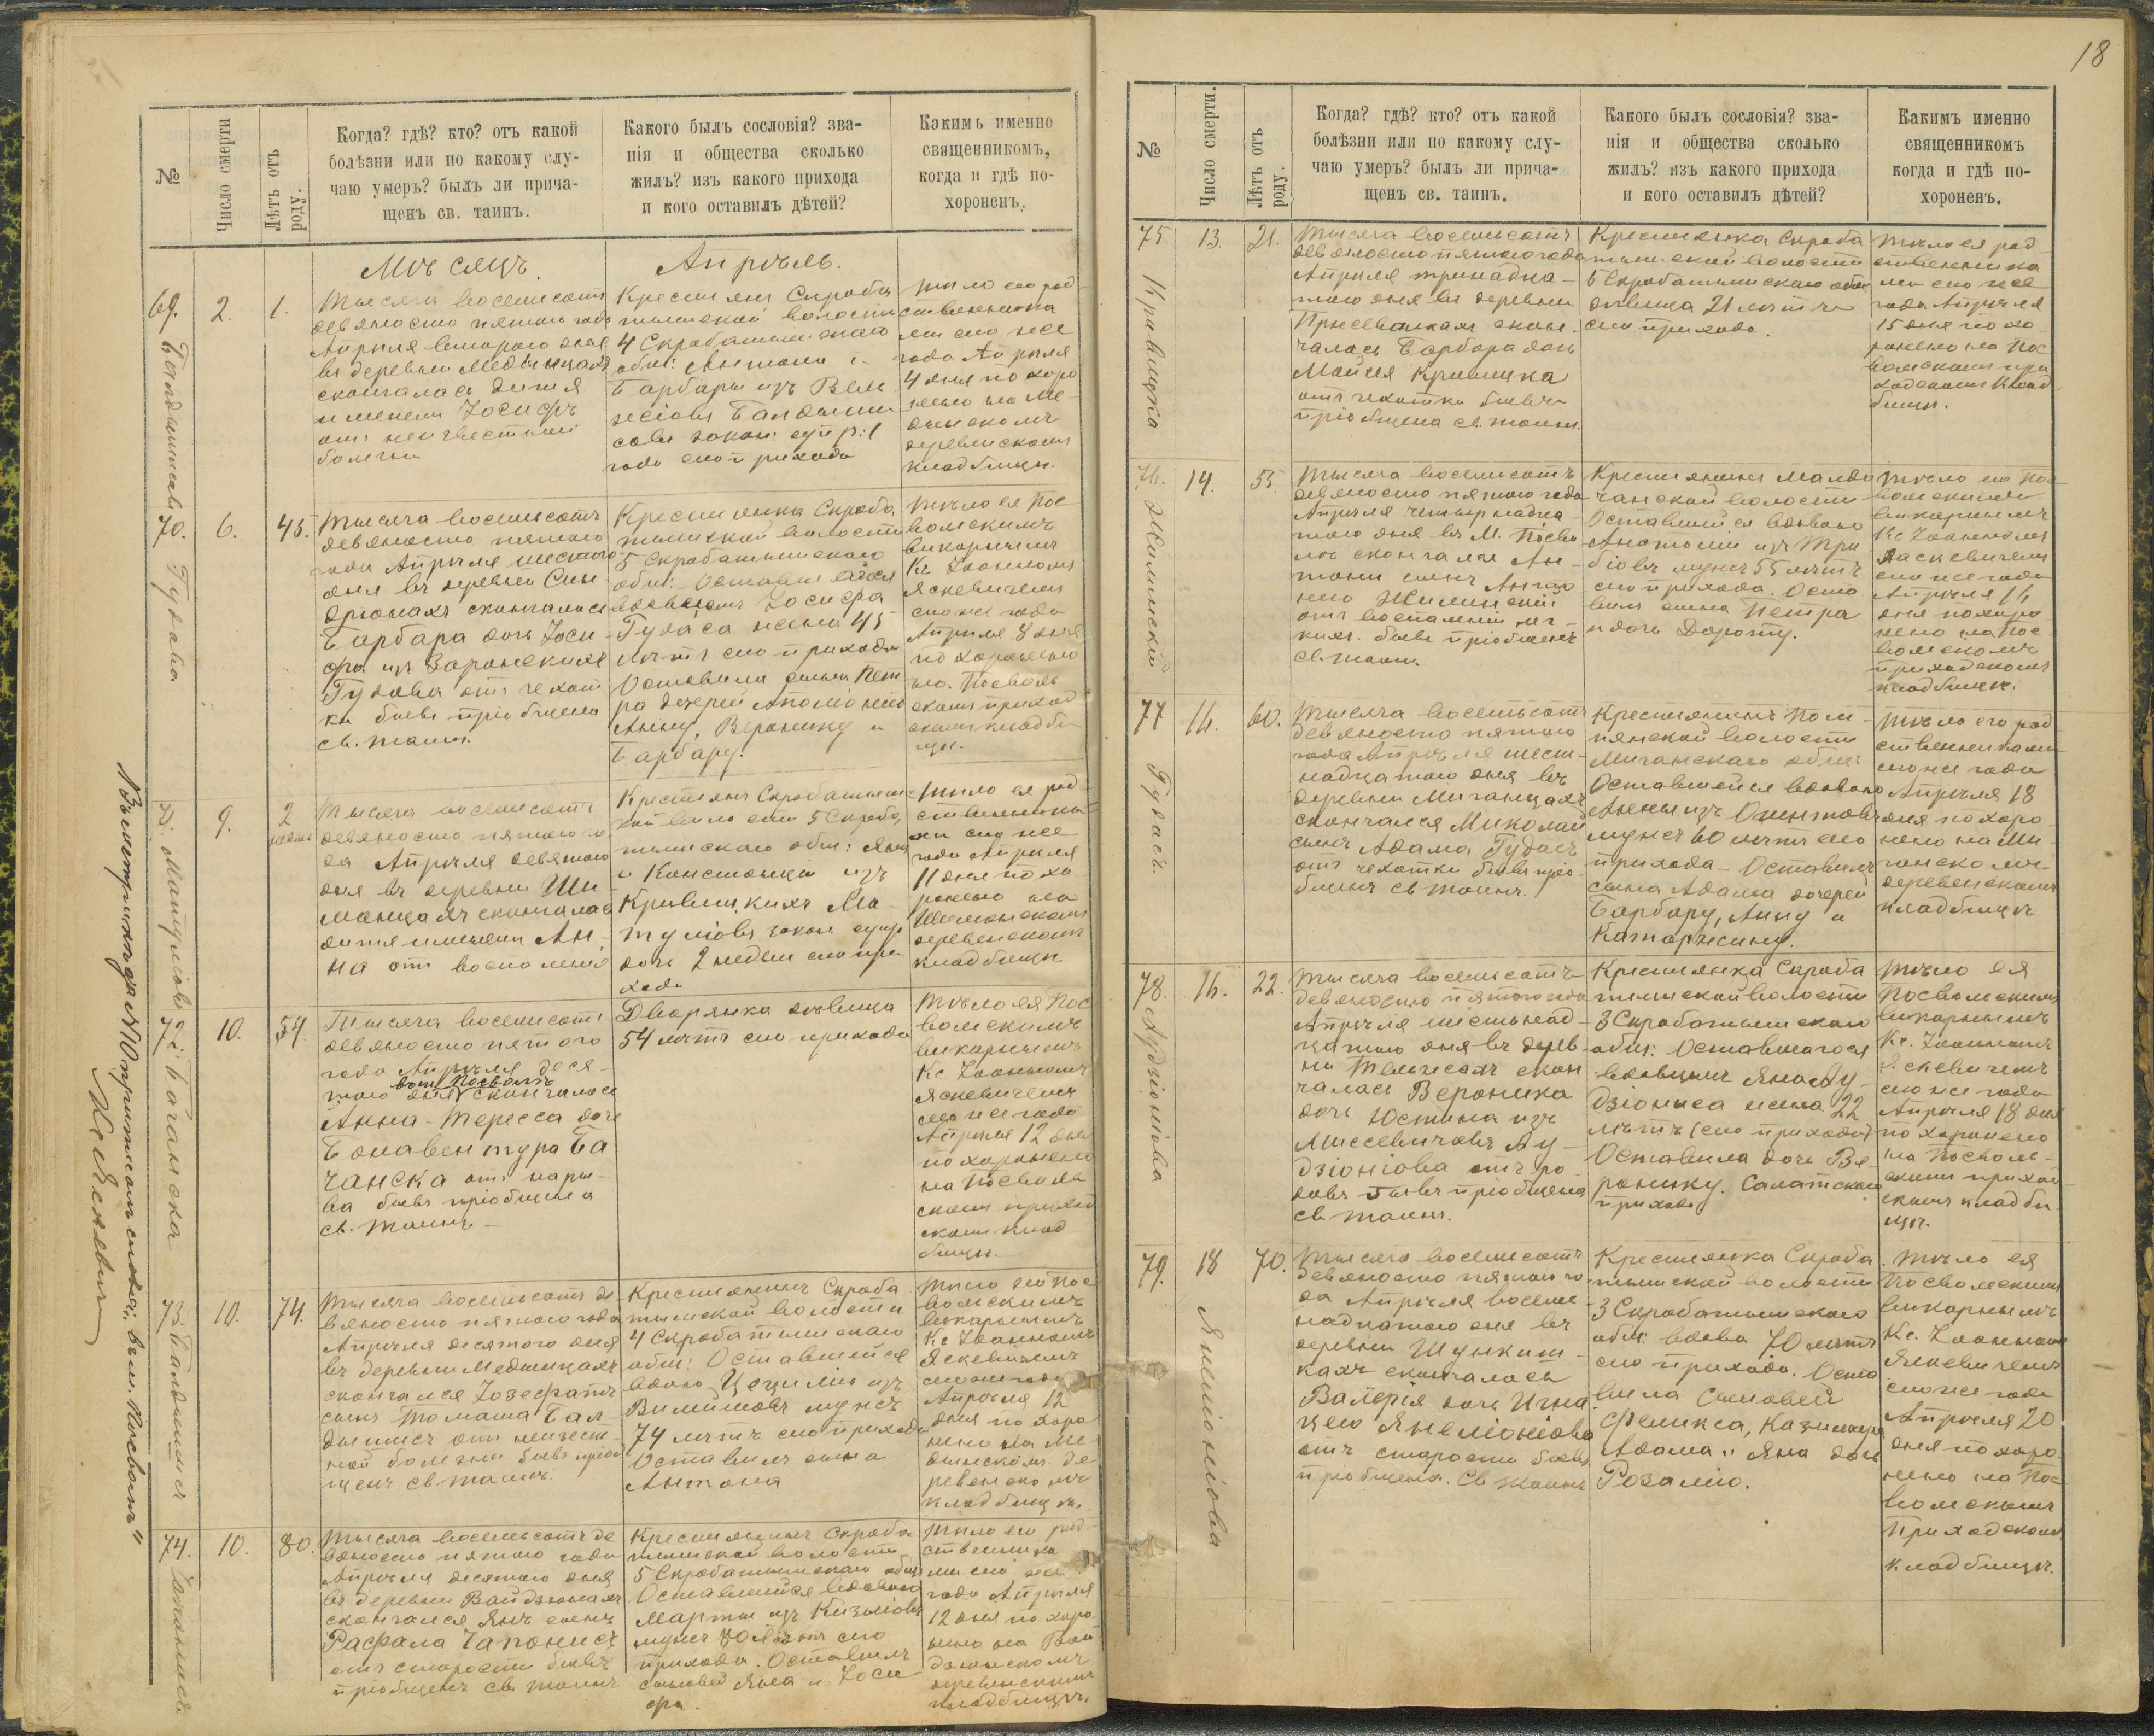 18
№
Число смерти
Лѣтъ отъ роду.
Когда? гдѣ? кто? отъ какой
болѣзни или по какому слу-
чаю умеръ? былъ ли прича-
щенъ св. таинъ.
Какого былъ сословія? зва-
нія и общества сколько
жилъ? изъ какого прихода
и кого оставилъ дѣтей?
Какимъ именно
священникомъ,
когда и гдѣ по-
хороненъ.
Мѣсяцъ. Апрѣль.
69.
2.
1.
Тысяча восемьсотъ
девяносто пятаго года
Апрѣля втораго дня
въ деревни Медынцахъ
скончалась дитя
именем Іосифъ
отъ неизвестной
болезни
Крестьянъ Скроба
тышской волости
4 Скробатышскаго
общ: Антона и
Барбары изъ
Балдыши
совъ закон: супр: 1
года сего прихода
тѣло его род
ственника
ми сего же
года Апрѣля
4 дня похоро
нено на Ме
дынскомъ
деревенскомъ
кладбищѣ.
70.
Гудова
6.
45.
Тысяча восемьсотъ
девяносто пятаго
года Апрѣля шестого
дня въ деревни
скончалась
Барбара дочь Іоси
фа изъ Заронскихъ
Гудова отъ чехот
ки бывъ пріобщена
св. таинъ.
Крестьянка Скроба
тышской волости
5 Скробатышскаго
общ: Оставшагося
вдовцомъ Іосифа
Гудаса жена 45
лѣтъ сего прихода
Оставила сына Пет
ра дочерей Аполонію
Анну, Веронику и
Барбару.
Тѣло ея Пос
вольскимъ
викарнымъ
Кс Іоанномъ
Яскевичемъ
сего же года
Апрѣля 8 дня
похоронено
на Посволь
скомъ приход
скомъ кладби
щѣ.
9.
2
недели
Тысяча восемьсотъ
девяносто пятаго го
да Апрѣля девятого
дня въ деревни Ши
манцахъ скончалась
дитя именем Ан
на отъ воспаления
Крестьянъ Скробатыш
кой волости 5 Скроба
тышскаго общ: Яна
и Констанціи изъ
Кривицкихъ Ма
туліовъ закон супр
дочь 2 недели сего при
хода
тѣло ея род
ственника
ми сего же
года Апрѣля
11 дня похо
ронено на
Шиманскомъ
деревенскомъ
кладбищѣ
72.
Бачанска
10.
54.
Тысяча восемьсотъ
девяносто пятаго
года Апрѣля деся-
таго дня въ м. Посволѣ скончалась
Анна-Тересса дочь
Бонавентура Ба
чанска отъ нары-
ва бывъ пріобщена
св. таинъ
Дворянка дѣвица
54 лѣтъ сего прихода
Тѣло ея Пос
вольскимъ
викарнымъ
Кс Іоанномъ
Яскевичемъ
сего же года
Апрѣля 12 дня
похоронено
на Посволь
скомъ приход
скомъ клад
бищѣ.
73.
Балдышись
10.
74.
Тысяча восемьсотъ де
вяносто пятаго года
Апрѣля десятого дня
въ деревни Медынцахъ
скончался Іозефатъ
сынъ Томаша Бал
дышись отъ неизвест
ной болезни бывъ пріоб
щенъ св. таинъ.
Крестьянинъ Скроба
тышской волости
4 Скробатышскаго
общ: Оставшейся
вдовою Цецилію изъ
мужъ
74 лѣтъ сего прихода
Оставилъ сына
Антона
Тѣло его Пос
вольскимъ
викарнымъ
Кс Іоанномъ
Яскевичемъ
сего же года
Апрѣля 12
дня похоро
нено на Ме
дынскомъ де
ревенскомъ
кладбищѣ.
74.
Чапонисъ
10.
80.
Тысяча восемьсотъ де
вяносто пятаго года
Апрѣля десятого дня
въ деревни Вайдзюнахъ
скончался Янъ сынъ
Рафала Чапонисъ
отъ старости бывъ
пріобщенъ св. таинъ
Крестьянинъ Скроба
тышской волости
5 Скробатышскаго общ
Оставшейся вдовою
Марты изъ
мужъ 80 лѣтъ сего
прихода. Оставилъ
сыновей Яна и Іоси
фа.
Тѣло его род
ственника
ми сего же
года Апрѣля
12 дня похоро
нено на Вай
дзюнскомъ
деревенскомъ
кладбищѣ.
Кс Яскевичъ
№
Число смерти.
Лѣтъ отъ роду.
Когда? гдѣ? кто? отъ какой
болѣзни или по какому слу-
чаю умеръ? былъ ли прича-
щенъ св. таинъ.
Какого былъ сословія? зва-
нія и общества сколько
жилъ? изъ какого прихода
и кого оставилъ дѣтей?
Какимъ именно
священникомъ
когда и гдѣ по-
хороненъ.
75
Кривицка
13.
21.
Тысяча восемьсотъ
девяносто пятаго года
Апрѣля тринадца-
таго дня въ деревни
скон-
чалась Барбара дочь
Кривицка
отъ чехотки бывъ
пріобщена св. таинъ.
Крестьянка Скроба
тышской волости
5 Скробатышскаго общ
дѣвица 21 лѣтъ
сего прихода.
Тѣло ея род
ственника
ми сего же
года Апрѣля
15 дня похо
ронено на Пос
вольскомъ при
ходскомъ клад
бищѣ.
76.
Жилинскій
14.
55.
Тысяча восемьсотъ
девяносто пятаго года
Апрѣля четырнадца
таго дня въ М. Посво
лѣ скончался Ан-
тони сынъ
Жилинскій
отъ воспаленія лег
кихъ бывъ пріобщенъ
св. таинъ.
Крестьянинъ
волости
Оставшейся вдовою
изъ Три
біовъ мужъ 55 лѣтъ
сего прихода. Оста
вилъ сына Петра
и дочь Дороту.
Тѣло его Пос
вольскимъ
викарнымъ
Кс Іоанномъ
Яскевичемъ
сего же года
Апрѣля 16
дня похоро
нено на Пос
вольскомъ
приходскомъ
кладбищѣ.
77
Гудасъ.
16.
60.
Тысяча восемьсотъ
девяносто пятаго
года Апрѣля шест-
надцатаго дня въ
деревни Миганцахъ
скончался Миколай
сынъ Адама Гудасъ
отъ чехотки бывъ пріо
бщенъ св таинъ.
Крестьянинъ
волости
Миганскаго общ:
Оставшейся вдовою
Анны изъ
мужъ 60 лѣтъ сего
прихода - Оставилъ
сына Адама дочерей
Барбару, Анну и
Катаржину.
Тѣло его род
ственниками
сего же года
Апрѣля 18
дня похоро
нено на Ми
ганскомъ
деревенскомъ
кладбищѣ
78.
Аудзіонова
16.
22.
Тысяча восемьсотъ
девяносто пятаго года
Апрѣля шестьнад-
цатаго дня въ дерев-
ни скон
чалась Вероника
дочь Юстина изъ
Миссевичовъ Ау-
дзіоніова отъ ро-
довъ бывъ пріобщена
св. таинъ.
Крестьянка Скроба
тышской волости
3 Скробатышскаго
общ: Оставшагося
вдовцомъ Яна Ау-
дзіониса жена 22
лѣтъ (сего прихода)
Оставила дочь Ве-
ронику. Салатскаго
прихода
Тѣло ея
Посвольскимъ
викарнымъ
Кс. Іоанномъ
Яскевичемъ
сего же года
Апрѣля 18 дня
похоронено
на Посволь-
скомъ приход
скомъ кладби
щѣ.
79.
18
70.
Тысяча восемьсотъ
девяносто пятаго го
да Апрѣля восем-
надцатаго дня въ
деревни
кахъ скончалась
Валерія дочь Игна
цего
отъ старости бывъ
пріобщена. Св таинъ
Крестьянка Скроба
тышской волости
3 Скробатышскаго
общ: вдова 70 лѣтъ
сего прихода. Оста
вила сыновей
Феликса, Казимира
Адама и Яна дочь
Розалію.
Тѣло ея
Посвольскимъ
викарнымъ
Кс. Іоанномъ
Яскевичемъ
сего же года
Апрѣля 20
дня похоро
нено на Пос
вольскомъ
Приходскомъ
кладбищѣ.